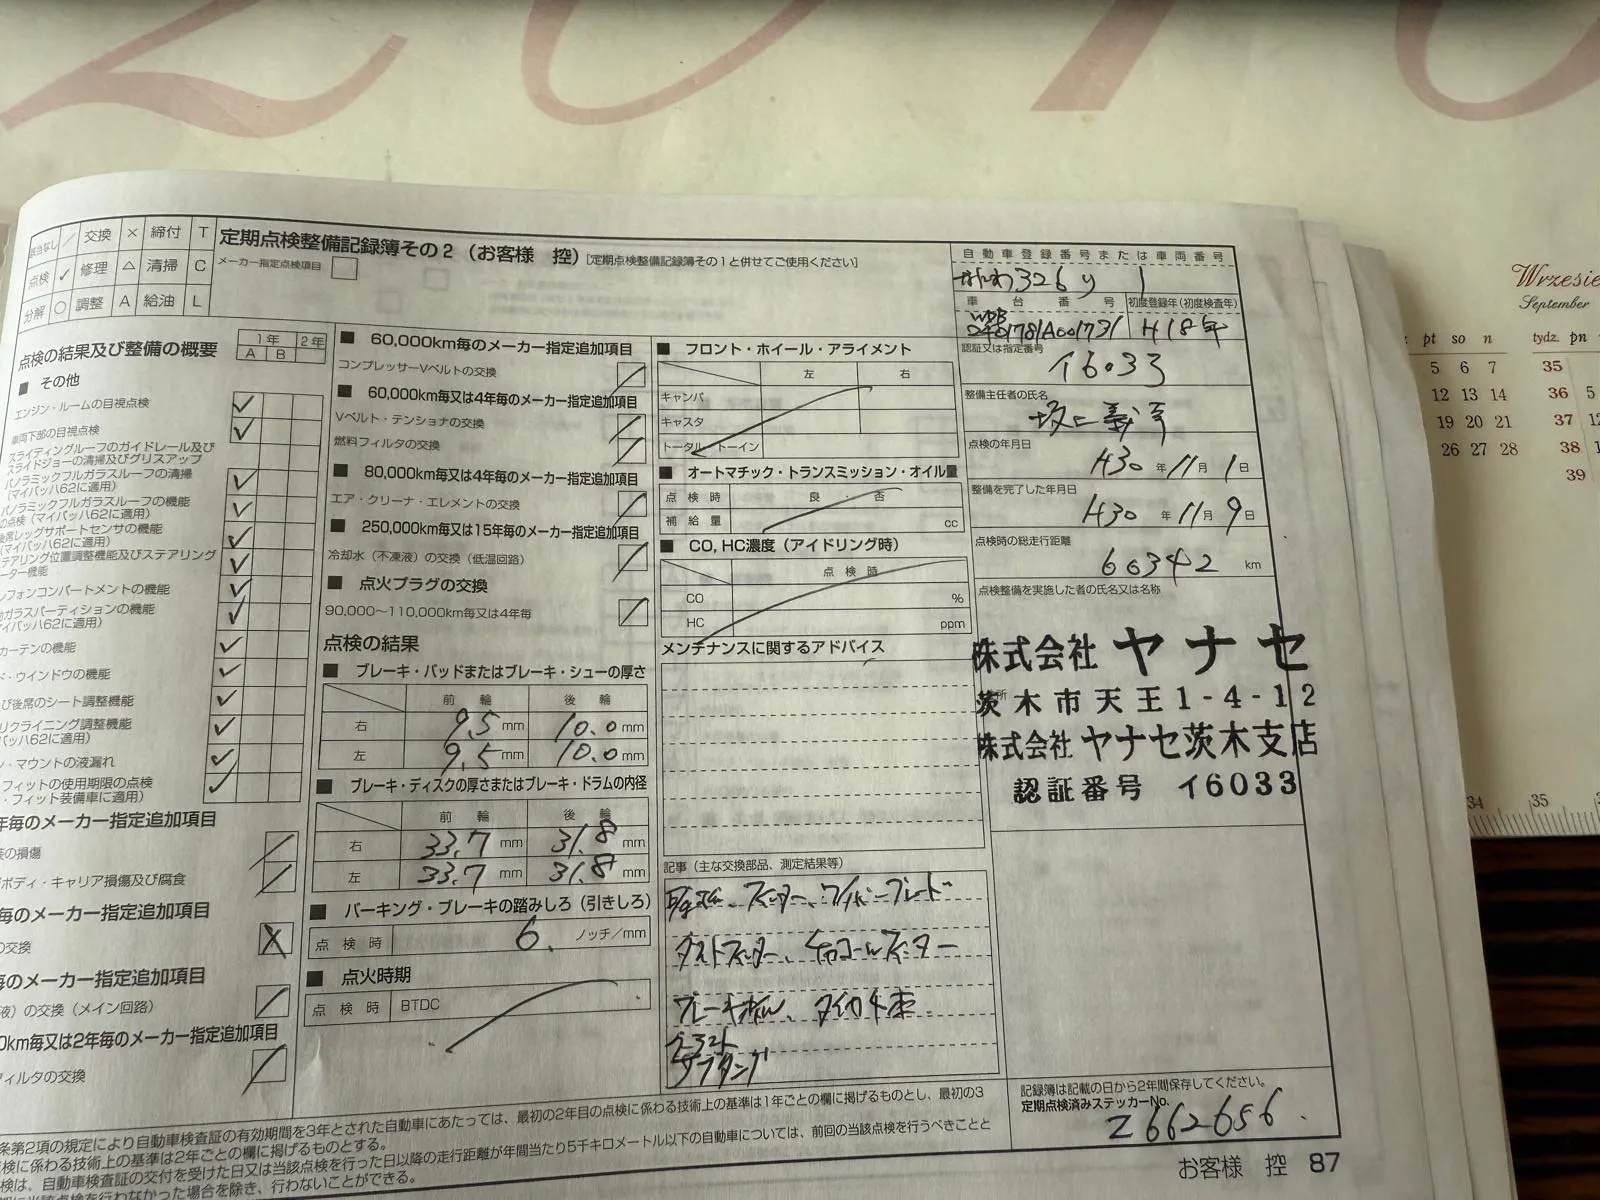 2010
Wrzesie
September
pt so n tydz. pn
5 6 7 35
12 13 14 36 5
19 20 21 37
26 27 28 38
39
34 35
交換 × 締付 T
点検 ✓ 修理 △ 清掃 C
分解 ○ 調整 A 給油 L
定期点検整備記録簿その2（お客様 控）[定期点検整備記録簿その1と併せてご使用ください]
メーカー指定点検項目
点検の結果及び整備の概要
1年 2年
A B
■ その他
エンジン・ルームの目視点検
車両下部の目視点検
スライディングルーフのガイドレール及び
スライドジョーの清掃及びグリスアップ
パノラミックフルガラスルーフの清掃
(マイバッハ62に適用)
パノラミックフルガラスルーフの機能
の点検（マイバッハ62に適用)
後席レッグサポートセンサの機能
(マイバッハ62に適用)
テアリング位置調整機能及びステアリング
ーター機能
レフォンコンパートメントの機能
ガラスパーティションの機能
イバッハ62に適用)
カーテンの機能
ド・ウインドウの機能
び後席のシート調整機能
リクライニング調整機能
バッハ62に適用)
ン・マウントの液漏れ
フィットの使用期限の点検
・フィット装備車に適用)
年毎のメーカー指定追加項目
の損傷
ボディ・キャリア損傷及び腐食
毎のメーカー指定追加項目
の交換
毎のメーカー指定追加項目
液）の交換（メイン回路）
0km毎又は2年毎のメーカー指定追加項目
フィルタの交換
■ 60,000km毎のメーカー指定追加項目
コンプレッサーVベルトの交換
■ 60,000km毎又は4年毎のメーカー指定追加項目
Vベルト・テンショナの交換
燃料フィルタの交換
■ 80,000km毎又は4年毎のメーカー指定追加項目
エア・クリーナ・エレメントの交換
■ 250,000km毎又は15年毎のメーカー指定追加項目
冷却水（不凍液）の交換（低温回路）
■ 点火プラグの交換
90,000〜110,000km毎又は4年毎
点検の結果
■ ブレーキ・パッドまたはブレーキ・シューの厚さ
前輪 後輪
右 9.5 mm 10.0 mm
左 9.5 mm 10.0 mm
■ ブレーキ・ディスクの厚さまたはブレーキ・ドラムの内径
前輪 後輪
右 33.7 mm 31.8 mm
左 33.7 mm 31.8 mm
■ パーキング・ブレーキの踏みしろ（引きしろ）
点検時 6. ノッチ/mm
■ 点火時期
点検時 BTDC
■ フロント・ホイール・アライメント
左 右
キャンバ
キャスタ
トータル トーイン
■ オートマチック・トランスミッション・オイル量
点検時 良・否
補給量 cc
■ CO, HC濃度（アイドリング時）
点検時
CO %
HC ppm
メンテナンスに関するアドバイス
記事（主な交換部品、測定結果等）
フィルター、ワイパーブレード
ダストフィルター、チャコールフィルター
自動車登録番号または車両番号
326
車台番号 初度登録年(初度検査年)
WDB
2401781A001731 H18年
認証又は指定番号
イ6033
整備主任者の氏名
点検の年月日
H30年11月1日
整備を完了した年月日
H30年11月9日
点検時の総走行距離
60342 km
点検整備を実施した者の氏名又は名称
株式会社 ヤナセ
茨木市天王1-4-12
株式会社 ヤナセ茨木支店
認証番号 イ6033
記録簿は記載の日から2年間保存してください。
定期点検済みステッカーNo.
Z662656.
条第2項の規定により自動車検査証の有効期間を3年とされた自動車にあたっては、最初の2年目の点検に係わる技術上の基準は1年ごとの欄に掲げるものとし、最初の3
検に係わる技術上の基準は2年ごとの欄に掲げるものとする。
検は、自動車検査証の交付を受けた日又は当該点検を行った日以降の走行距離が年間当たり5千キロメートル以下の自動車については、前回の当該点検を行うべきことと
を行わなかった場合を除き、行わないことができる。
お客様 控 87